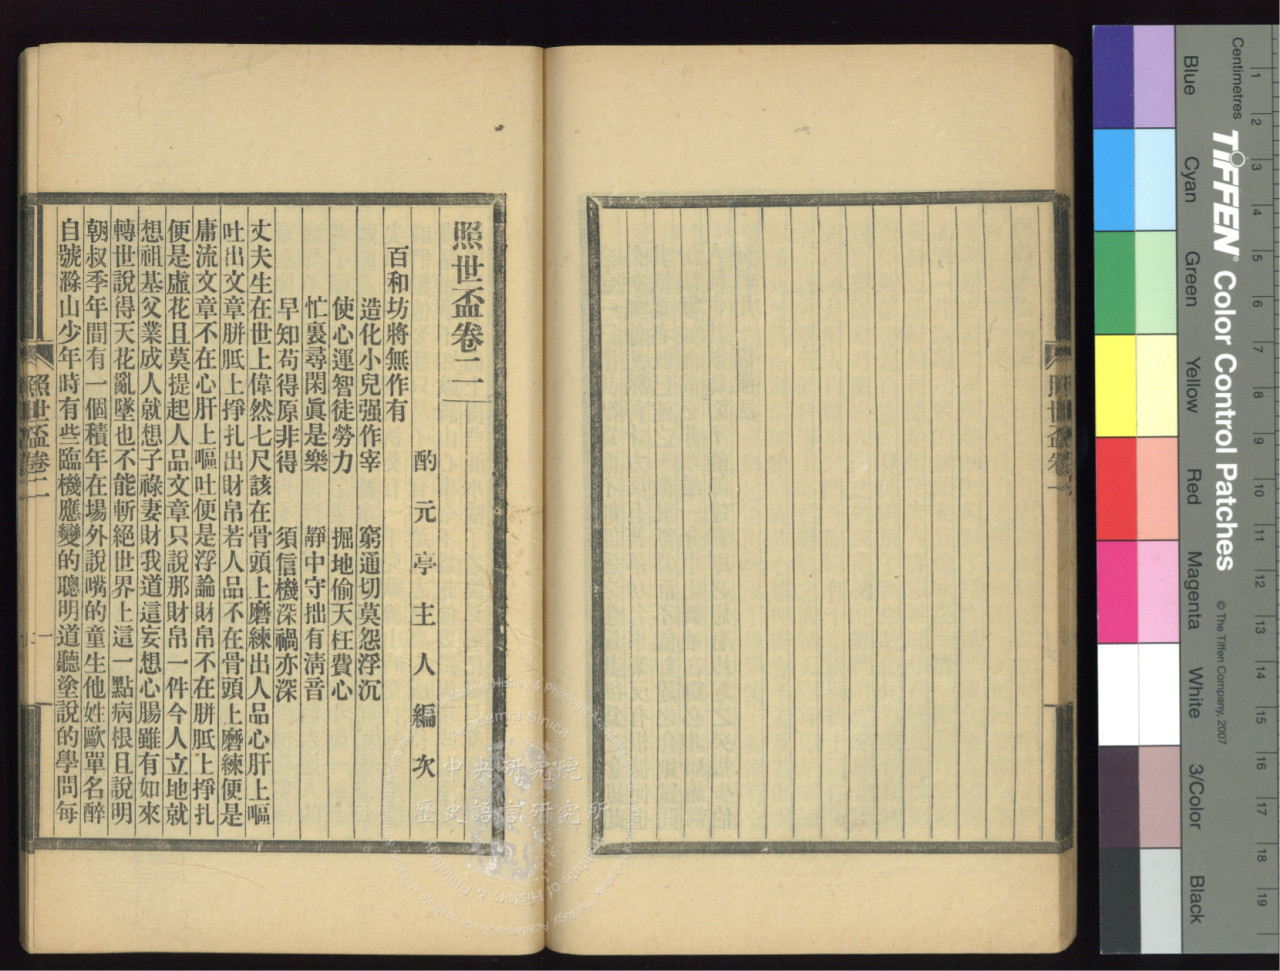 照世盃卷二
酌元亭主人編次
百和坊將無作有
造化小兒强作宰　窮通切莫怨浮沉
使心運智徒勞力　掘地偷天枉費心
忙裏尋閑眞是樂　靜中守拙有清音
早知苟得原非得　須信機深禍亦深
丈夫生在世上偉然七尺該在骨頭上磨練出人品心肝上嘔
吐出文章胼胝上掙扎出財帛若人品不在骨頭上磨練便是
庸流文章不在心肝上嘔吐便是浮論財帛不在胼胝上掙扎
便是虛花且莫提起人品文章只說那財帛一件今人立地就
想祖基父業成人就想子祿妻財我道這妄想心腸雖有如來
轉世說得天花亂墜也不能斬絕世界上這一點病根且說明
朝叔季年間有一個積年在場外說嘴的童生他姓歐單名醉
自號滁山少年時有些臨機應變的聰明道聽塗說的學問每
照世盃卷二
一
照世盃卷一
中央研究院
歷史語言研究所
Academia Sinica
Centimetres
TIFFEN® Color Control Patches
© The Tiffen Company, 2007
Blue
Cyan
Green
Yellow
Red
Magenta
White
3/Color
Black
1
2
3
4
5
6
7
8
9
10
11
12
13
14
15
16
17
18
19